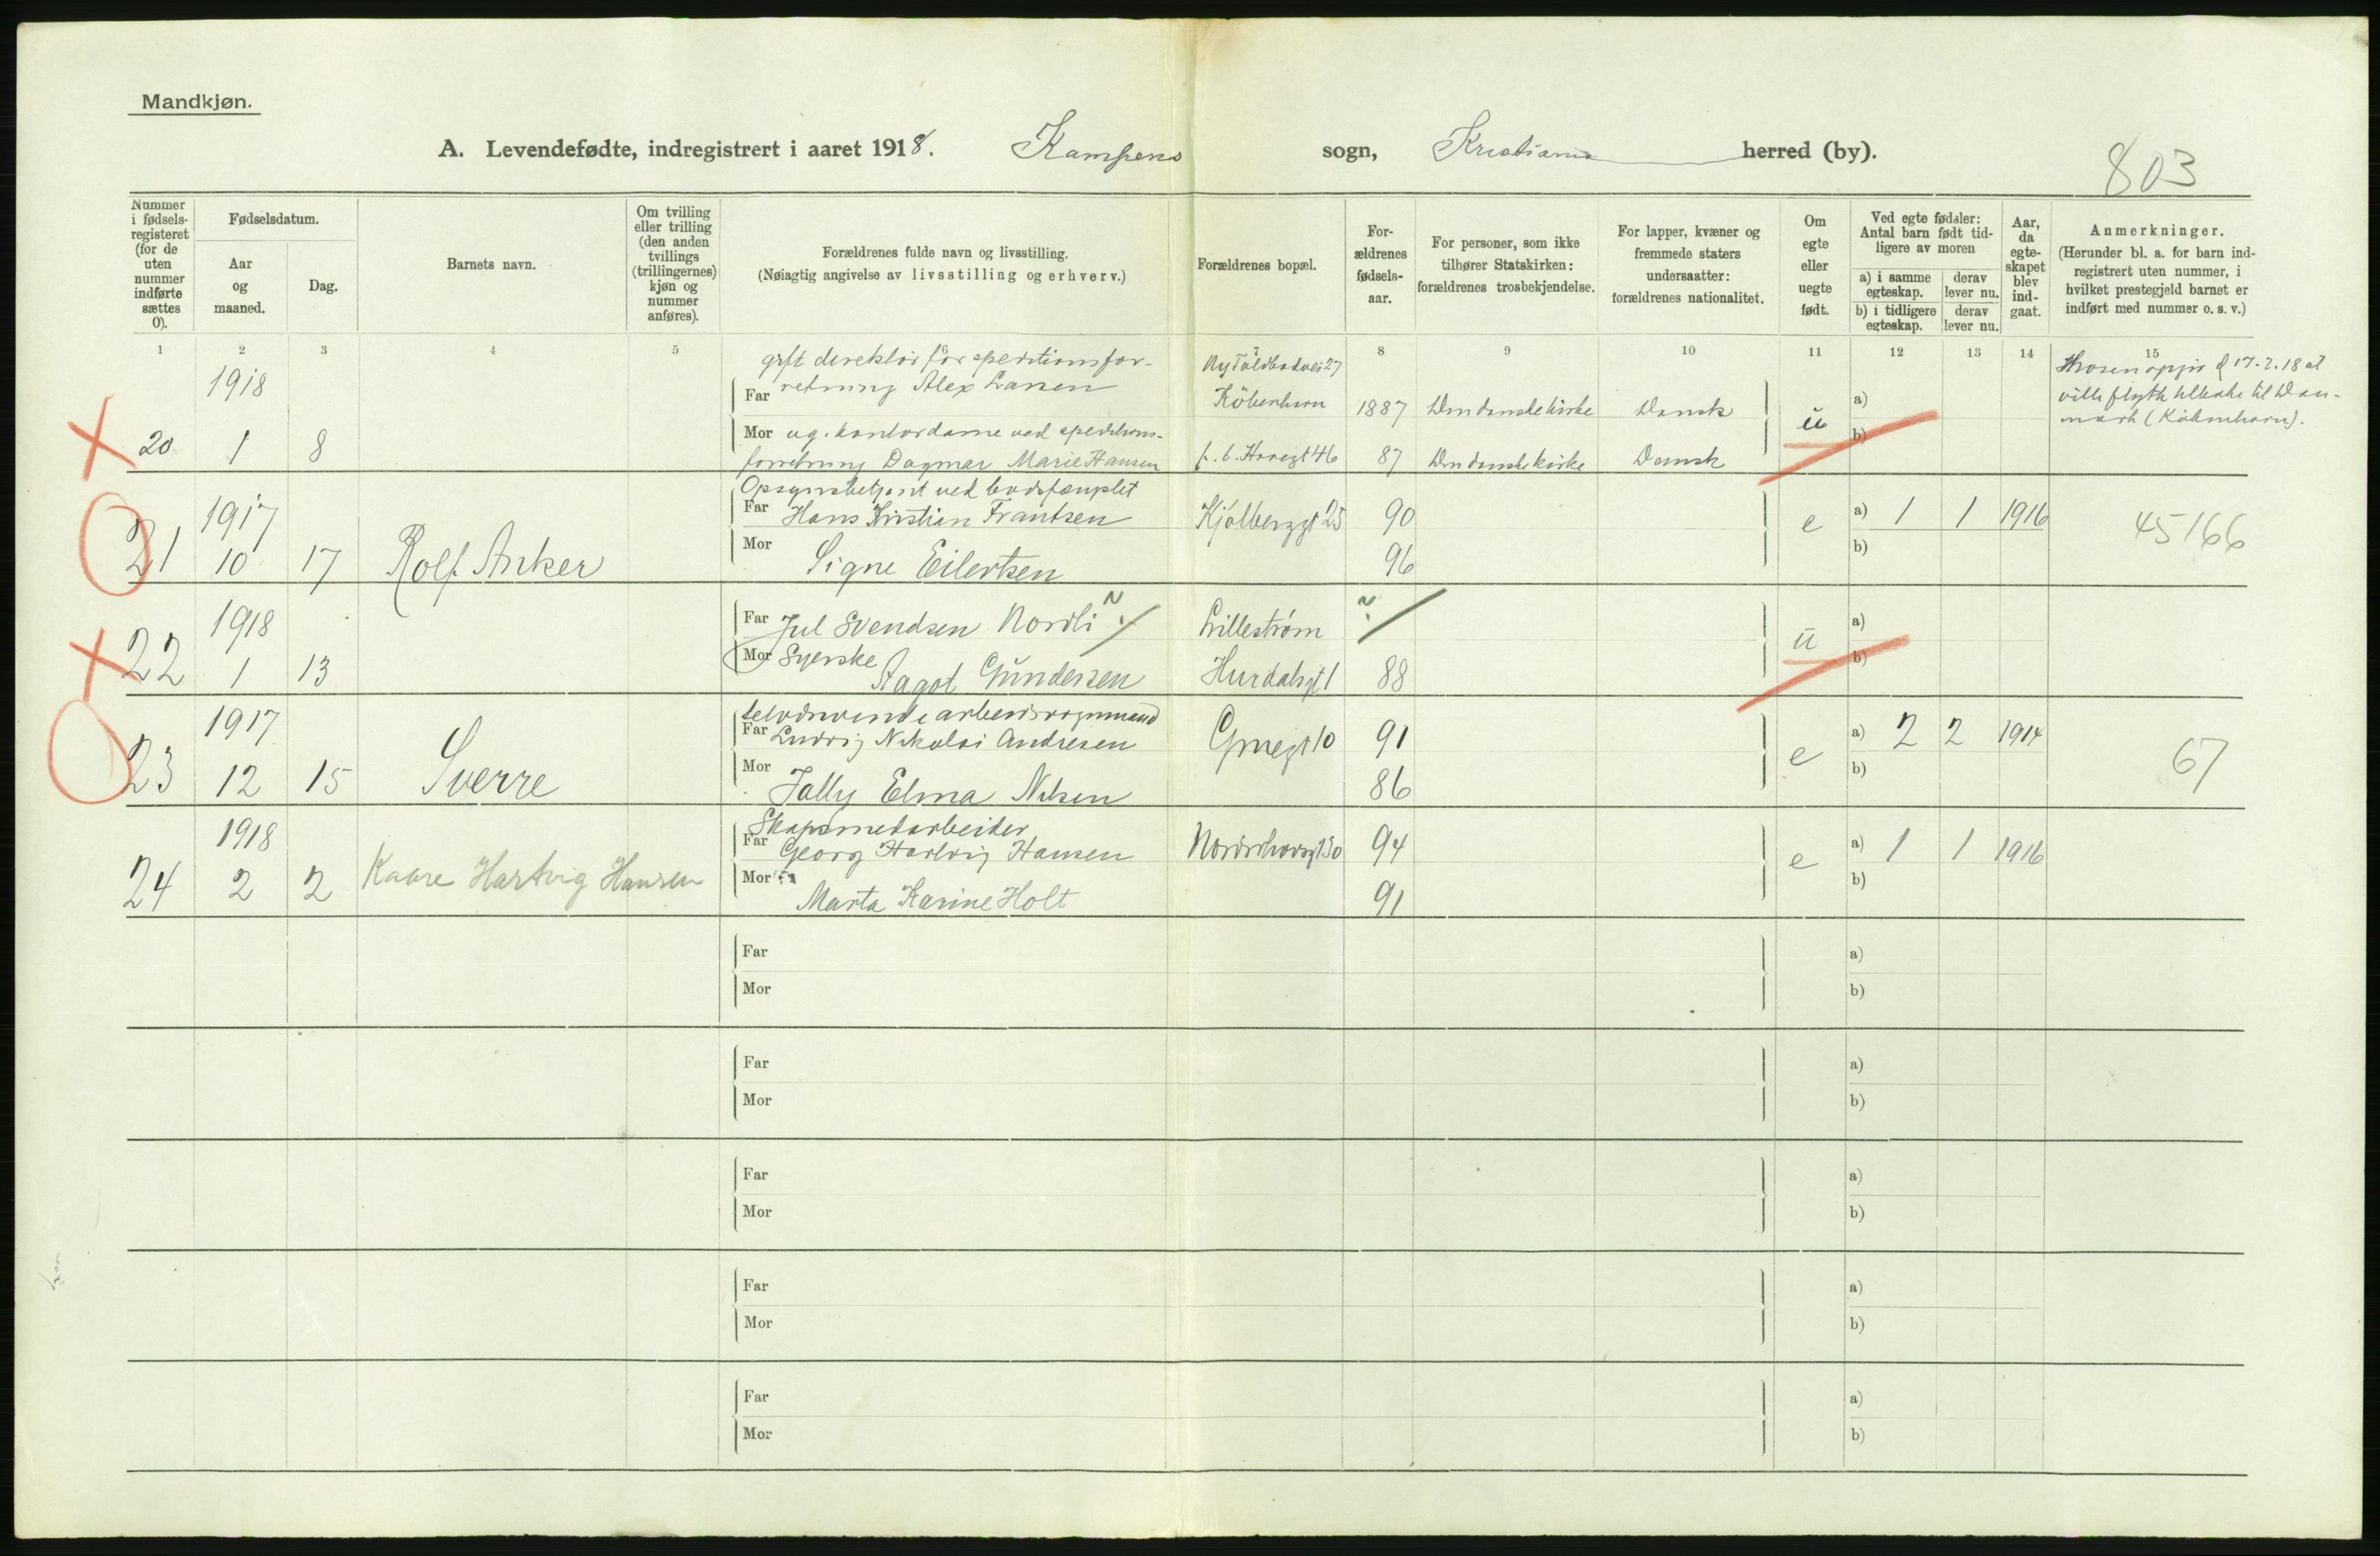 Mandkjøn.
A. Levendefødte, indregistrert i aaret 1918. Kampens sogn, Kristiania herred (by).
803
Nummer i fødsels-registeret (for de uten nummer indførte sættes 0).
Fødselsdatum.
Aar og maaned.
Dag.
Barnets navn.
Om tvilling eller trilling (den anden tvillings (trillingernes) kjøn og nummer anføres).
Forældrenes fulde navn og livsstilling.
(Nøiagtig angivelse av livsstilling og erhverv.)
Forældrenes bopæl.
For-ældrenes fødsels-aar.
For personer, som ikke tilhører Statskirken: forældrenes trosbekjendelse.
For lapper, kvæner og fremmede staters undersaatter: forældrenes nationalitet.
Om egte eller uegte født.
Ved egte fødsler: Antal barn født tid-ligere av moren
a) i samme egteskap.
derav lever nu.
b) i tidligere egteskap.
derav lever nu.
Aar, da egte-skapet blev ind-gaat.
Anmerkninger.
(Herunder bl. a. for barn ind-registrert uten nummer, i hvilket prestegjeld barnet er indført med nummer o. s. v.)
1 2 3 4 5 6 7 8 9 10 11 12 13 14 15
gift direktør for speditionsfor-
1918 Far retning Alex Larsen København 1887 Den danske kirke Dansk a)
20 1 8 Mor ug. kontordame ved speditions- ü b)
forretning Dagmar Marie Hansen 46 87 Den danske kirke Dansk
opgir 17-2.18 at
vilde flytte tilbake til Dan-
mark (København).
Opsynsbetjent ved bodsfængslet
1917 Far Hans Kristian Frantsen Kjølberggt 25 90 e a) 1 1 1916 45166
21 10 17 Rolf Anker Mor Signe Eilertsen 96 b)
1918 Far Jul Svendsen Nordli Lillestrøm ü a)
22 1 13 Mor Syerske Aagot Gundersen Hurdalsgt 1 88 b)
selvdrivende arbeidsvognmand
1917 Far Ludvig Nikolai Andresen 10 91 e a) 2 2 1914 67
23 12 15 Sverre Mor Jally Elma Nilsen 86 b)
1918 Far Georg Hartvig Hansen 94 e a) 1 1 1916
24 2 2 Kaare Hartvig Hansen Mor Marta Karine Holt 91 b)
Far a)
Mor b)
Far a)
Mor b)
Far a)
Mor b)
Far a)
Mor b)
Far a)
Mor b)